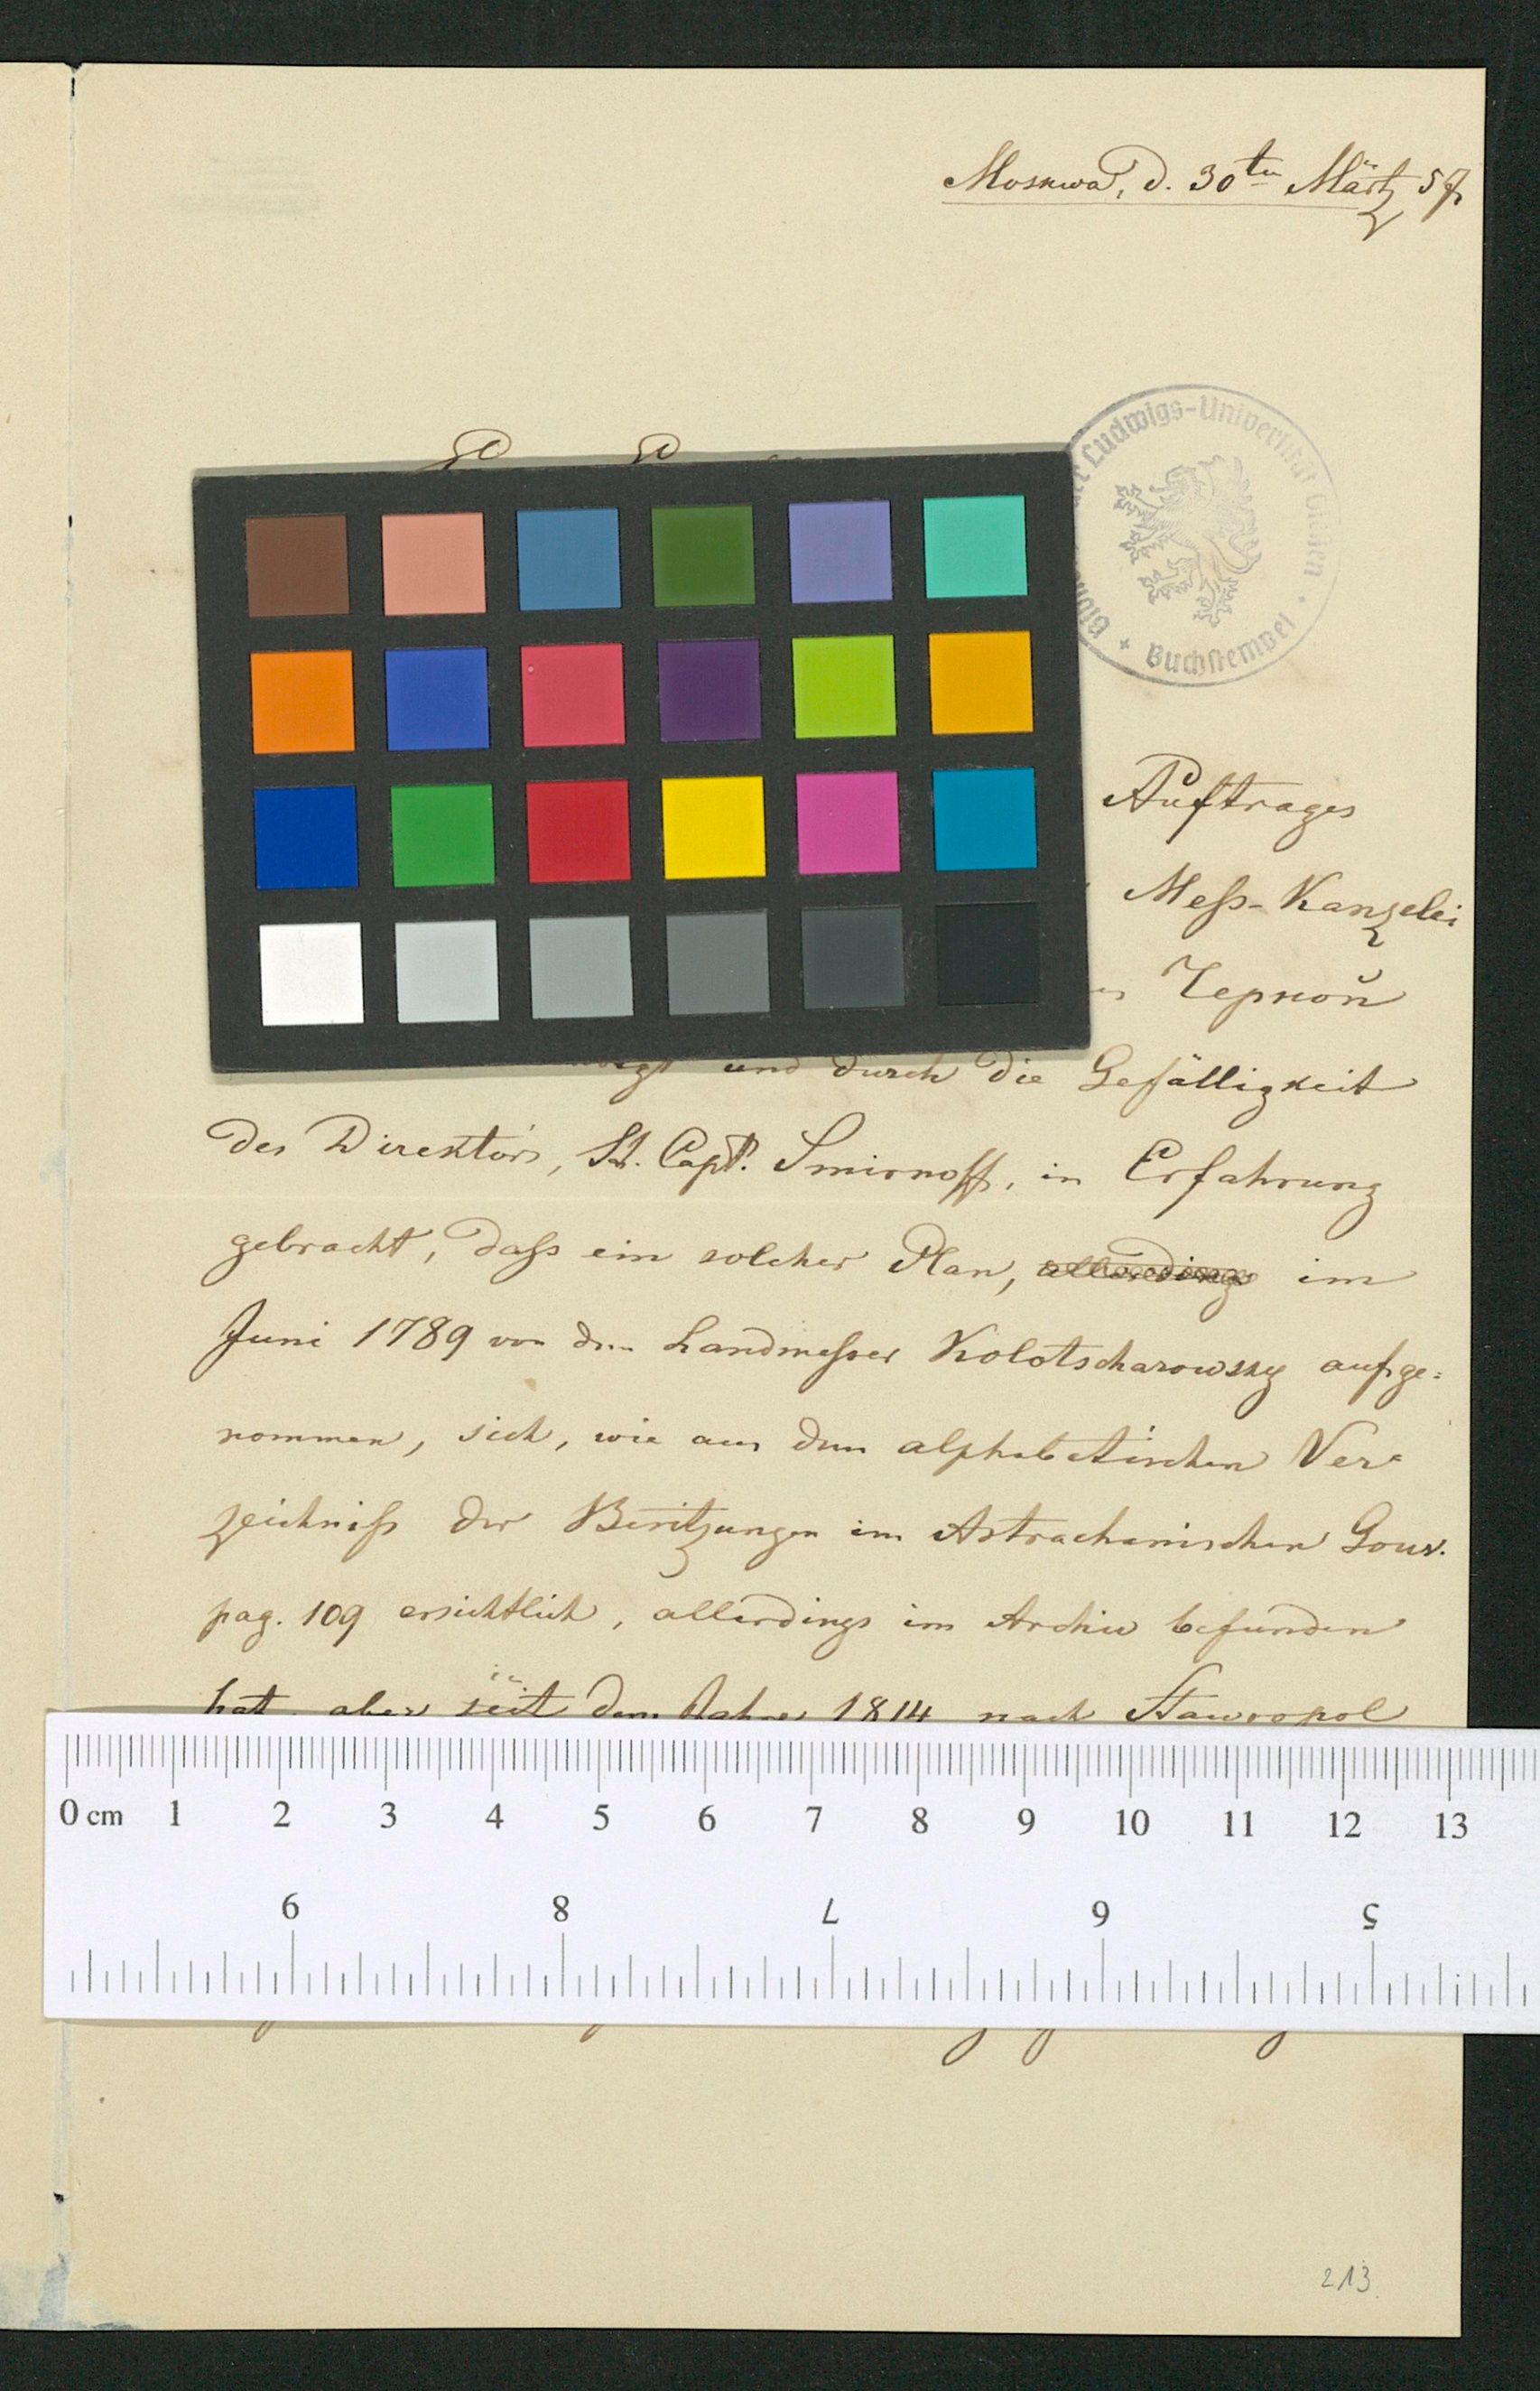 Moskwa, d. 30ten Märtz 57
der Ludwigs-Universität Gießen
Buchstempel
Auftrages
Mess-Kanzelei
Черкой
und durch die Gefälligkeit
des Direktors, St. Capt. Smirnoff, in Erfahrung
gebracht, daß ein solcher Plan, allerdings im
Juni 1789 von dem Landmesser Kolotscharowsky aufge=
nommen, sich, wie aus dem alphabetischen Ver=
zeichniß der Besitzungen im Astrachanischen Gouv.
pag. 109 ersichtlich, allerdings im Archiv befunden
hat, aber seit dem Jahre 1814 nach Stawropol
0 cm 1 2 3 4 5 6 7 8 9 10 11 12 13
5 6 7 8 9
213